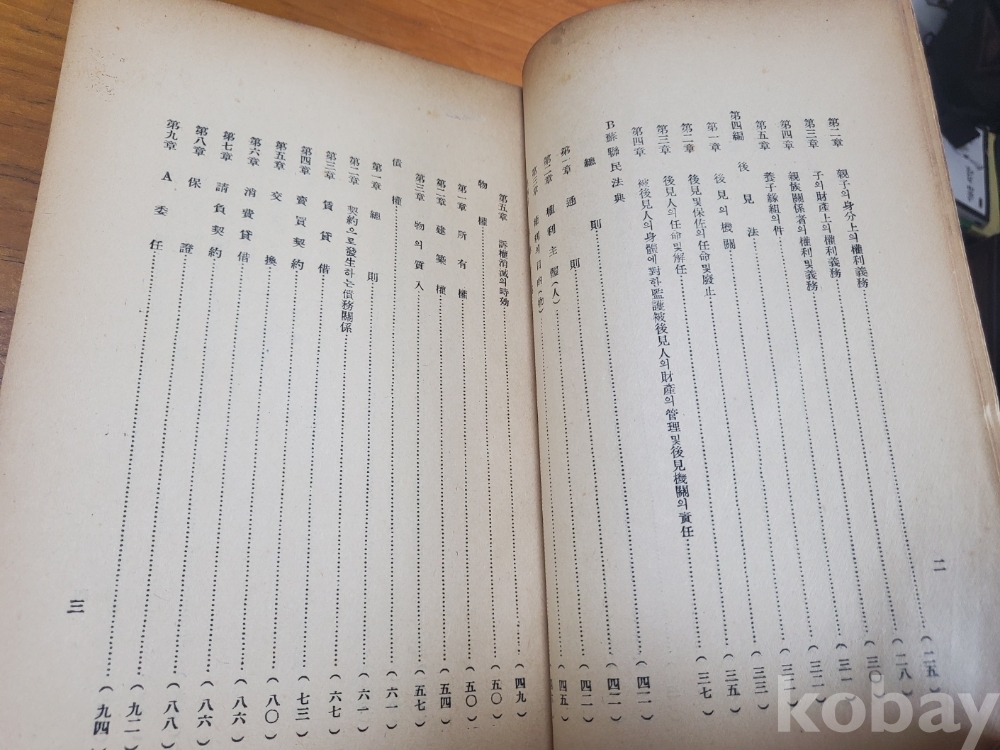 二
第二章 親子의身分上의權利義務 (二五)
第三章 子의財產上의權利義務 (二八)
第四章 親族關係者의權利및義務 (三〇)
第五章 養子緣組의件 (三一)
第四編 後見法 (三二)
第一章 後見의機關 (三二)
第二章 後見및保佐의任命및廢止 (三三)
第三章 後見人의任命및解任 (三五)
第四章 被後見人의身體에對한監護被後見人의財產의管理및後見機關의責任 (三七)
B蘇聯民法典
總則 (四一)
第一章 通則 (四一)
第二章 權利主體(人) (四二)
第三章 權利의目的(物) (四五)
第五章 訴權消滅의時効 (四九)
物權 (五〇)
第一章 所有權 (五〇)
第二章 建築權 (五四)
第三章 物의質入 (五七)
債權 (六一)
第一章 總則 (六一)
第二章 契約으로發生하는債務關係 (六七)
第三章 賃貸借 (七三)
第四章 賣買契約 (八〇)
第五章 交換 (八六)
第六章 消費貸借 (八六)
第七章 請負契約 (八八)
第八章 保證 (九一)
第九章 A委任 (九四)
三
kobay